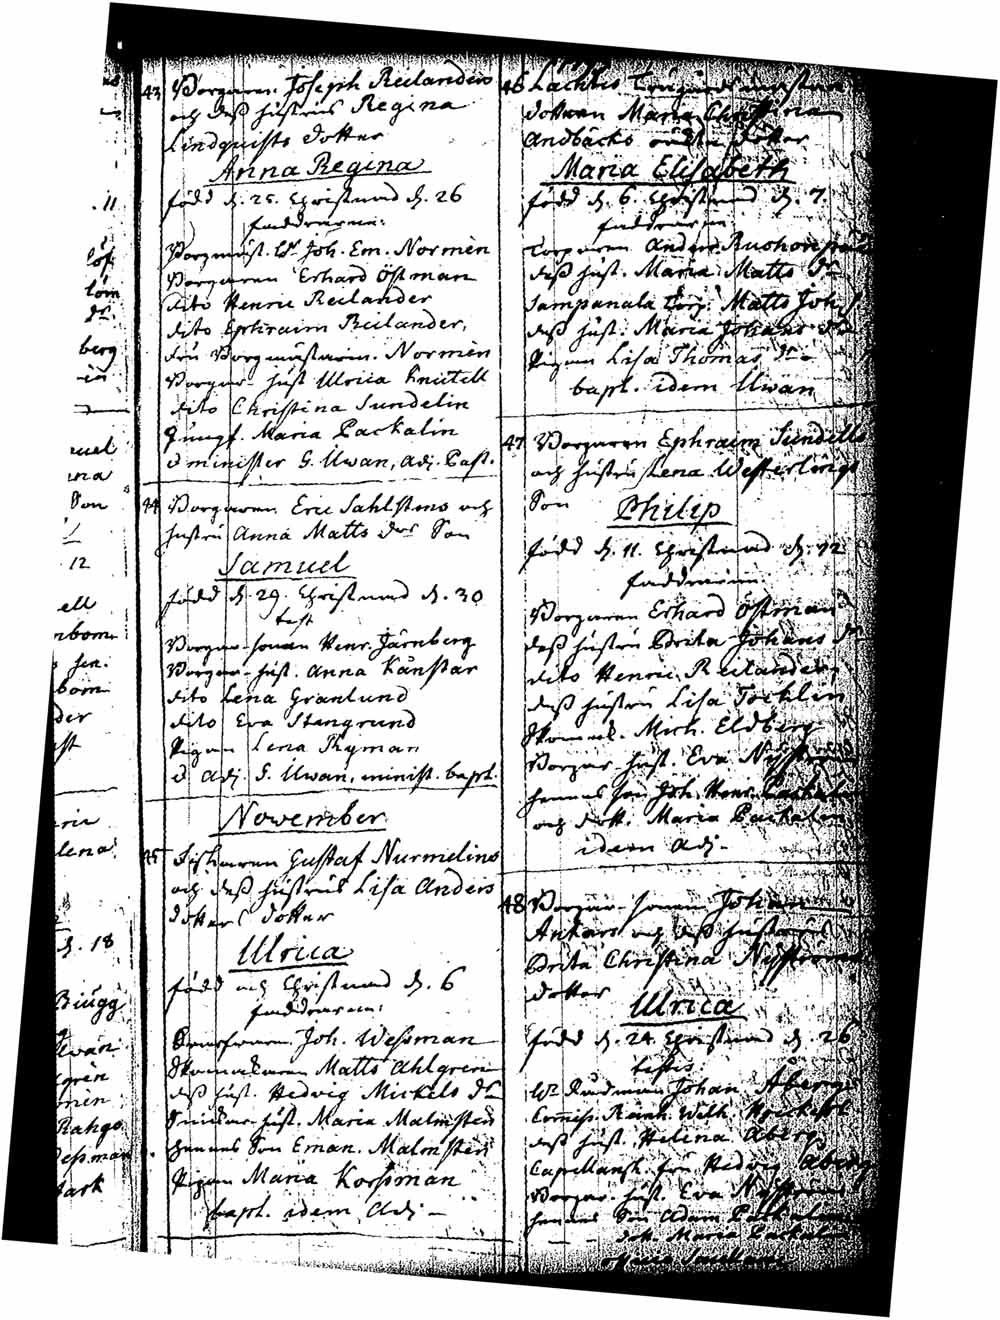 11
löf
löm
dr.
berg
in
uel
na
Son
12
ell
nbom
hen.
bom
der
st
ric
lena
d. 18
Biugg
Uwan
gren
men
Rahgo
Wessman
tark
43 Borgaren Joseph Reilanders
och dess hustrus Regina
Lindquists dotter
Anna Regina
född d. 25. Christnad d. 26
faddrarne:
Borgmäst. Hr Joh. Em. Normén
Borgaren Erhard Östman
dito Henric Reilander
dito Ephraim Reilander,
fru Borgmästarin. Normén
Borgar-hust Ulrica Enutell
dito Christina Sundelin
Jungf. Maria Packalin
v minister G. Uwan, adj. Past.
44 Borgaren Eric Sahlstens och
hustru Anna Matts dors Son
Samuel
född d. 29. Christnad d. 30
test
Borgar-sonen Henr. Järnberg
Borgar-hust. Anna Känstar
dito Lena Granlund
dito Eva Stengrund
Pigan Lena Ryman
v adj. G. Uwan, minist. bapt.
November
45 Fiskaren Gustaf Nurmelins
och dess hustrus Lisa Anders
dotters dotter
Ulrica
född och Christnad d. 6
faddrarne:
Joh. Wessman
Skomakaren Matts Ahlgren
dess hust. Hedvig Mickels dr
Snickar-hust. Maria Malmsten
hennes Son Eman. Malmsten
Pigan Maria Korssman
bapt. idem Adj-
46 Lachtis
dotteren Maria Christina
Andbäcks äckta dotter
Maria Elisabeth
född d. 6. Christnad d. 7.
faddrarne
Torparen Anders Ruohonpää
dess hust. Maria Matts dr
Sampanala Torp. Matts Joh. S.
dess hust. Maria Johans dr
Pigan Lisa Thomas dr
bapt. idem Uwan
47 Borgaren Ephraim Sundells
och hustru Lena Westerlings
Son
Philip
född d. 11. Christnad d. 12
faddrarne
Borgaren Erhard Östman
dess hustru Brita Johans dr
dito Henric Reilander,
dess hustru Lisa Tocklin
Skomak. Mich. Eldberg
Borgar-hust. Eva Nyström
hennes son Joh. Henr. Packalin
och dott. Maria Packalin
idem adj-
48 Borgar-sonen Johan
Ankars och dess hustrus
Brita Christina Nyströms
dotter
Ulrica
född d. 24 Christnad d. 26
testes
Hr Rådman Johan Åberg
Comiss. Wilh.
dess hust. Helena Åberg
Capellansk. fru Hedvig Åberg
Borgar-hust. Eva Nyström
hennes Son Adam Packalin
dott. Maria Packalin